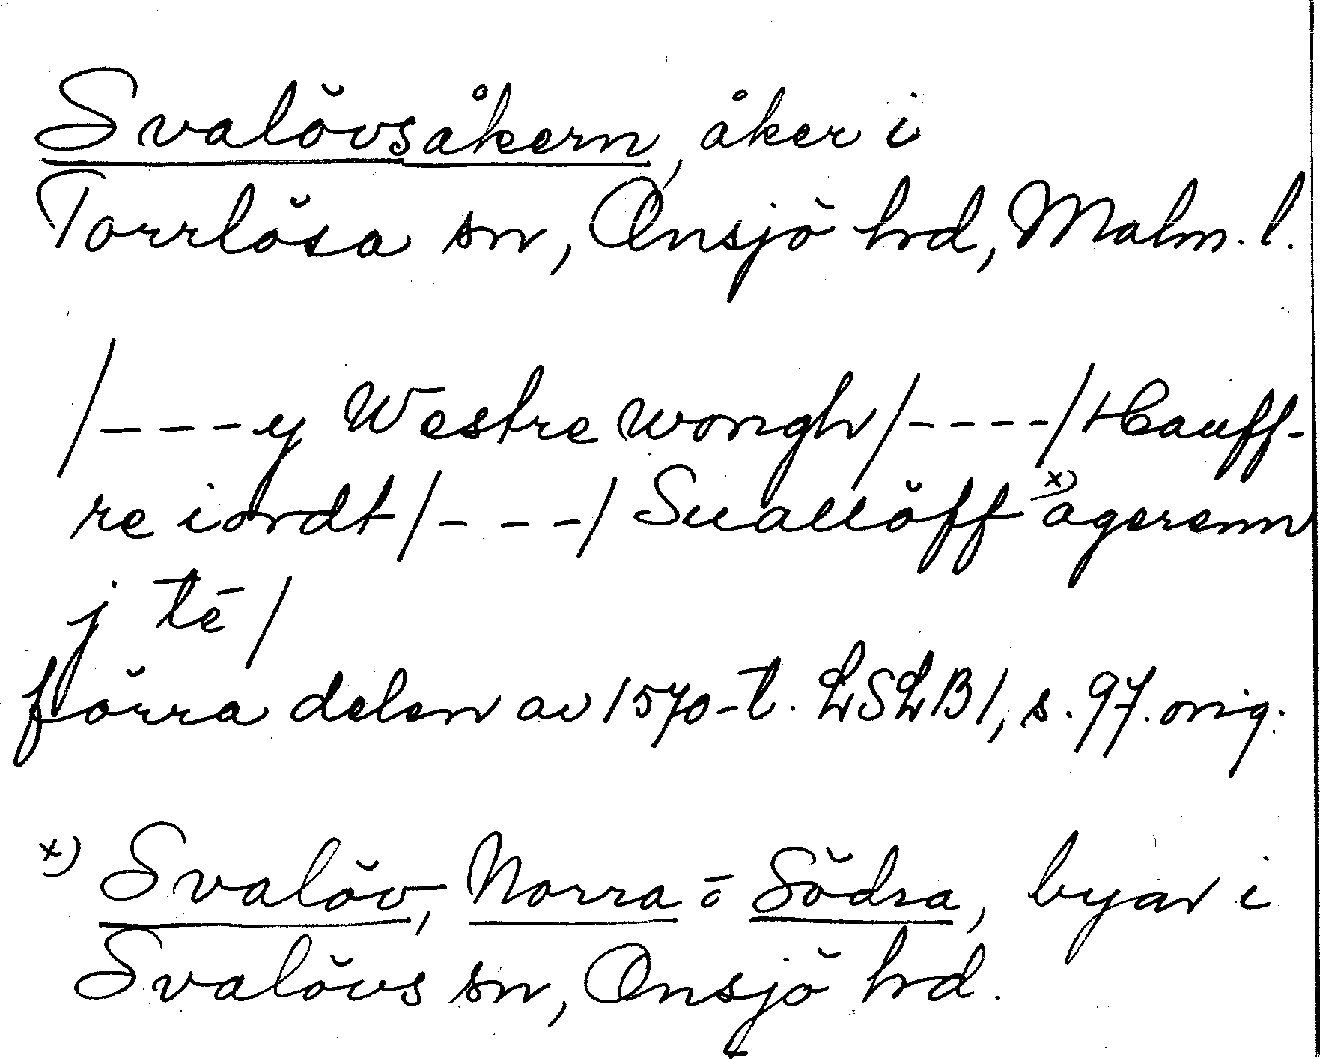 Svalövsåkern, åker i
Torrlösa sn, Onsjö hrd, Malm. l.
/----y Westre wongh/----/Hauff-
re iordt/---/Suallöff x) agerenn
j té/
förra delen av 1570-t. LSLB1, s. 97. orig.
x) Svalöv, Norra o Södra, byar i
Svalövs sn, Onsjö hrd.